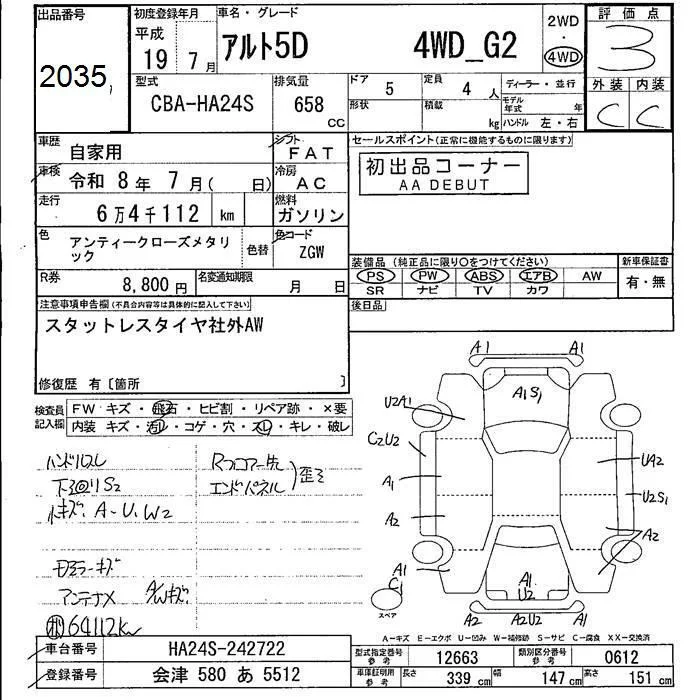 出品番号
2035
初度登録年月
平成
19 7月
車名・グレード
アルト5D 4WD_G2
2WD
・
4WD
評価点
3
外装 内装
C C
型式
CBA-HA24S
排気量
658
CC
ドア
5
定員
4 人
ディーラー・並行
形状
積載
kg
モデル
年式 年
ハンドル 左・右
車歴
自家用
シフト
FAT
車検
令和 8年 7月( 日)
冷房
AC
走行
6万4千112 km
燃料
ガソリン
色
アンティークローズメタリ
ック
色替
色コード
ZGW
R券
8,800円
名変通知期限
月 日
セールスポイント(正常に機能するものに限ります)
初出品コーナー
AA DEBUT
装備品(純正品に限り○をつけてください)
PS PW ABS エアB AW
SR ナビ TV カワ
新車保証書
有・無
後日品
注意事項申告欄(不具合内容等は具体的に記入して下さい)
スタットレスタイヤ社外AW
修復歴 有〔箇所 〕
検査員
記入欄
FW キズ・飛石・ヒビ割・リペア跡・×要
内装 キズ・汚れ・コゲ・穴・スレ・キレ・破レ
ハンドルスレ
下廻りS2
小キズ、A-U、W2
Rフロアー先
エンドパネル
歪ミ
アンテナX
A/Wキズ
64112km
A1 A1
A1S1
U2A1
C2U2
A1
A2
UA2
U2S1
A2
A1
C1
A1
U2
A2 A2U2 A1
スペア
A-キズ E-エクボ U-凹み W-補修跡 S-サビ C-腐食 XX-交換済
車台番号
HA24S-242722
登録番号
会津 580 あ 5512
型式指定番号
参考
12663
類別区分番号
参考
0612
車庫証明用
参考
長さ
339 cm
幅
147 cm
高さ
151 cm